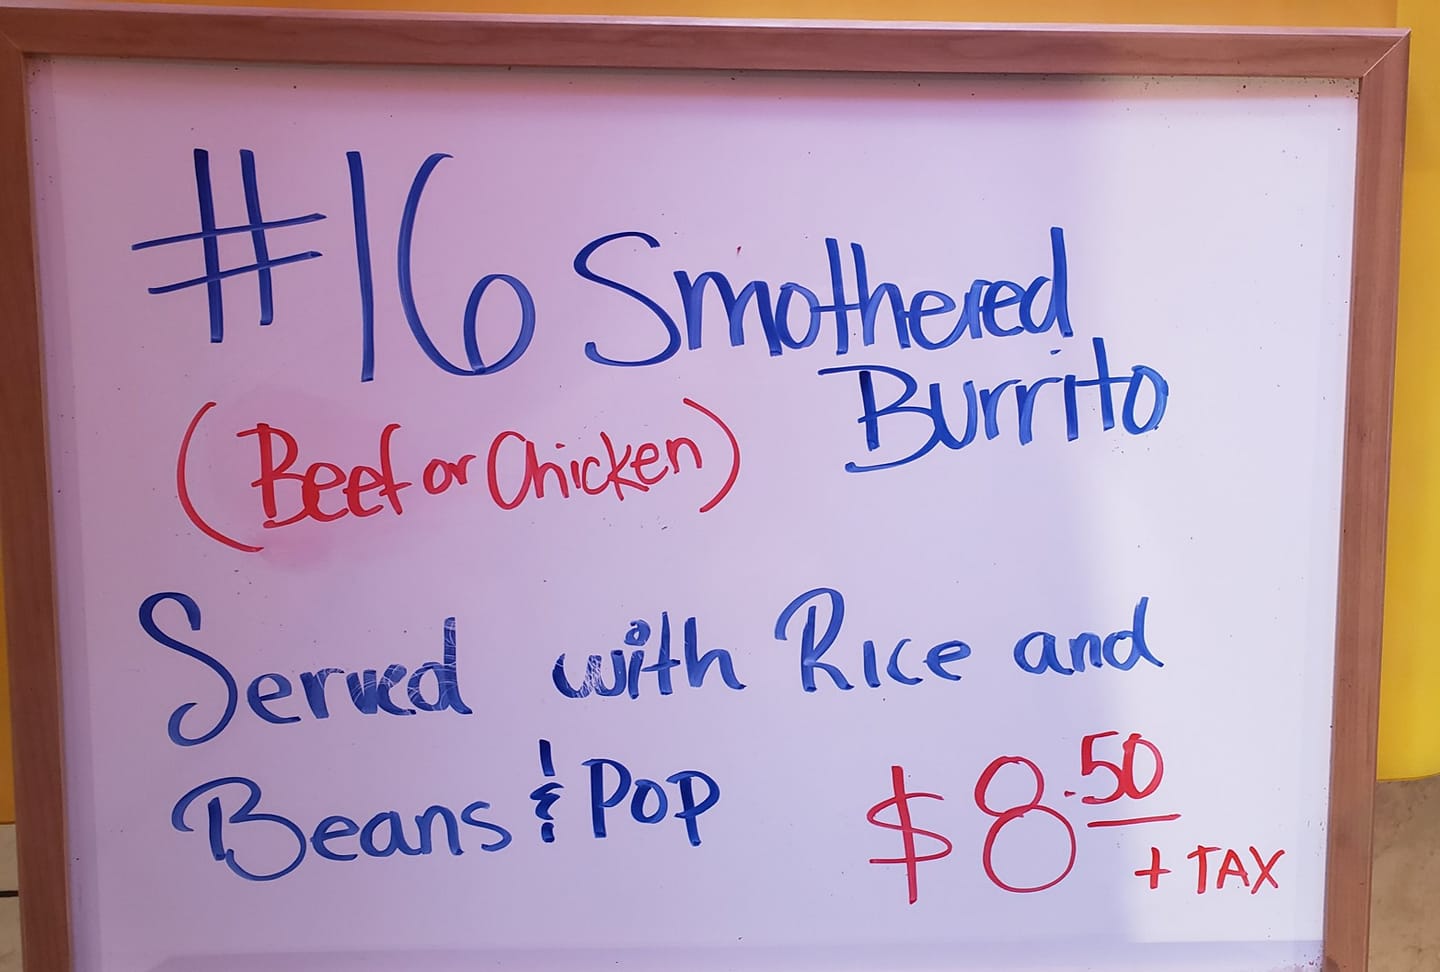 #16 Smothered
Burrito
(Beef or Chicken)
Served with Rice and
Beans & Pop
$8.50
+ TAX